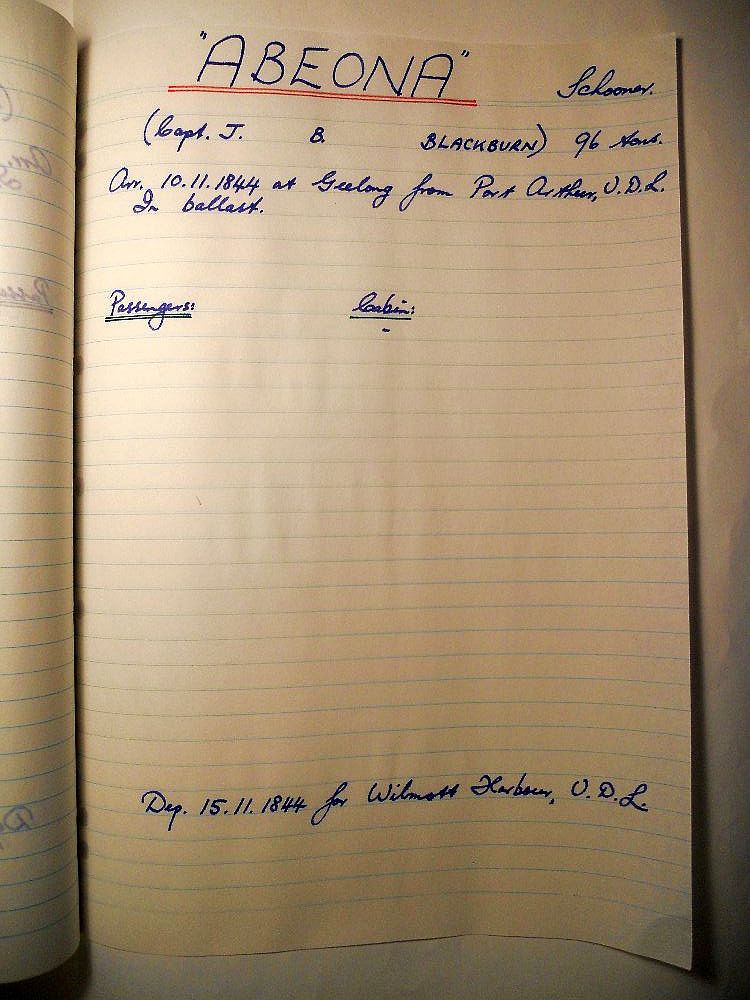 "ABEONA"
Schooner.
(Capt. J. B. BLACKBURN) 96 tons.
Arr. 10.11.1844 at Geelong from Port Arthur, V.D.L.
In ballast.
Passengers: Cabin:
-
Dep. 15.11.1844 for Wilmott Harbour, V.D.L.